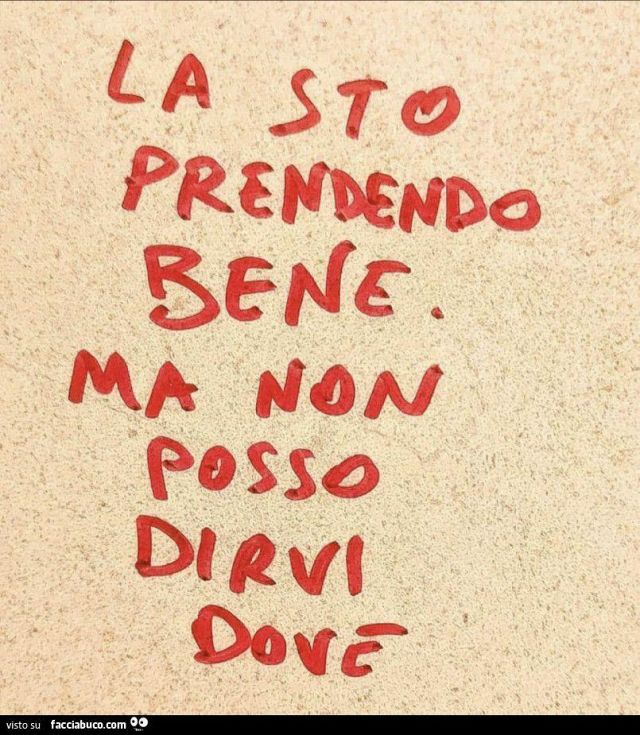 LA STO
PRENDENDO
BENE.
MA NON
POSSO
DIRVI
DOVE
visto su facciabuco.com